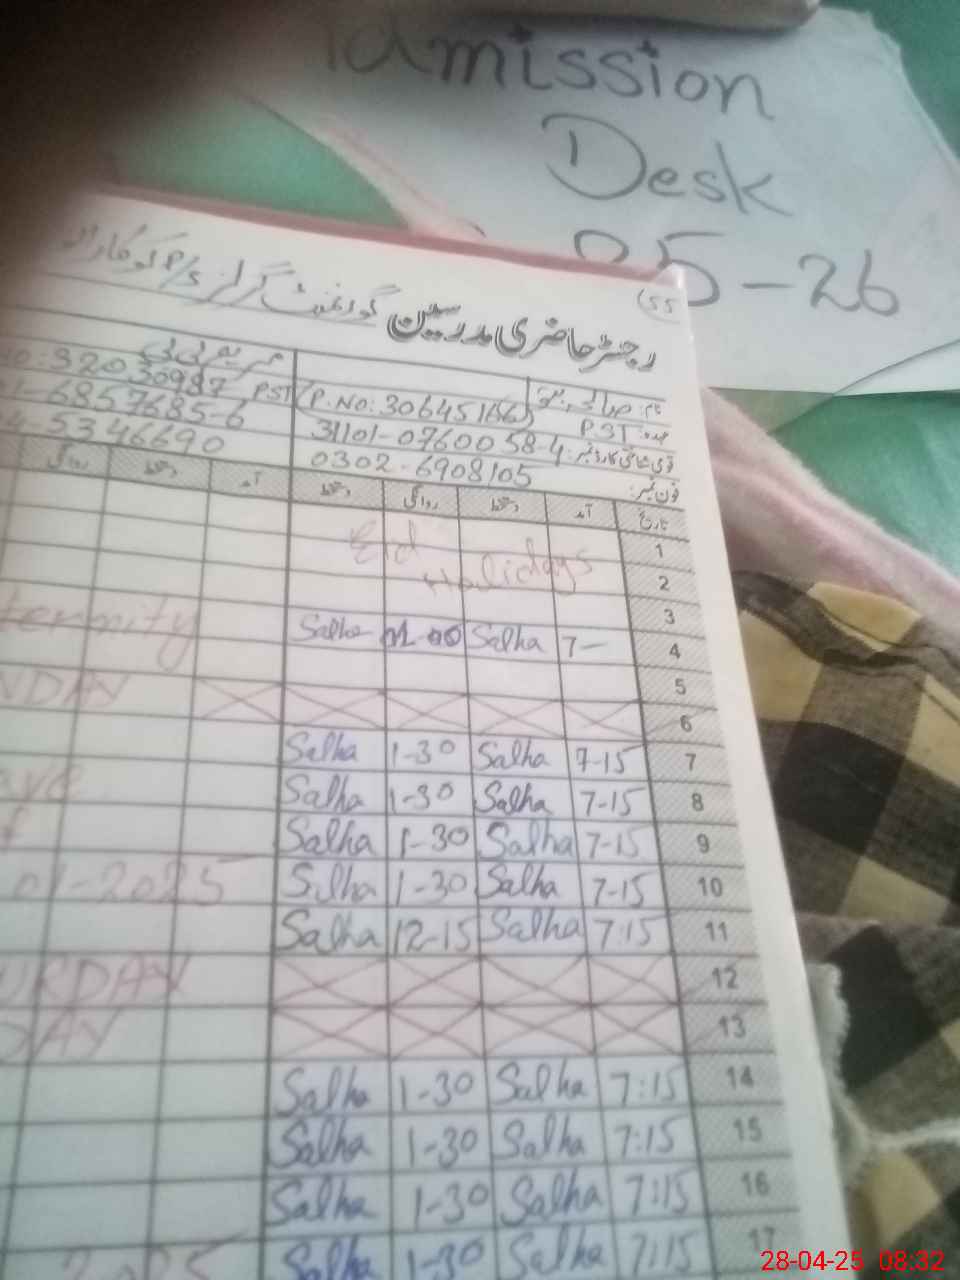 Admission
Desk
25-26
(55
رجسٹر حاضری مدرسین گورنمنٹ گرلز P/S
نام:
مریم بی بی
عہدہ: PST (P.NO: 30645166)
NO:32030987 PST
قومی شناختی کارڈ نمبر: 31101-0760058-4
1-6857685-6
فون نمبر: 0302-6908105
4-5346690
تاریخ آمد دستخط روانگی دستخط آمد دستخط روانگی
1 Eid
2 Holidays
3
4 7- Salha Salha
5
6
7 7-15 Salha 1-30 Salha
8 7-15 Salha 1-30 Salha
9 7-15 Salha 1-30 Salha
10 7-15 Salha 1-30 Salha
01-2025
11 7:15 Salha 12-15 Salha
12
13
14 7:15 Salha 1-30 Salha
15 7:15 Salha 1-30 Salha
16 7:15 Salha 1-30 Salha
17 7:15 Salha 1-30 Salha
28-04-25 08:32